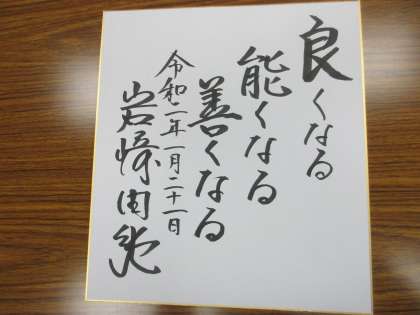 良くなる
能くなる
善くなる
令和二年一月二十一日
岩崎由純